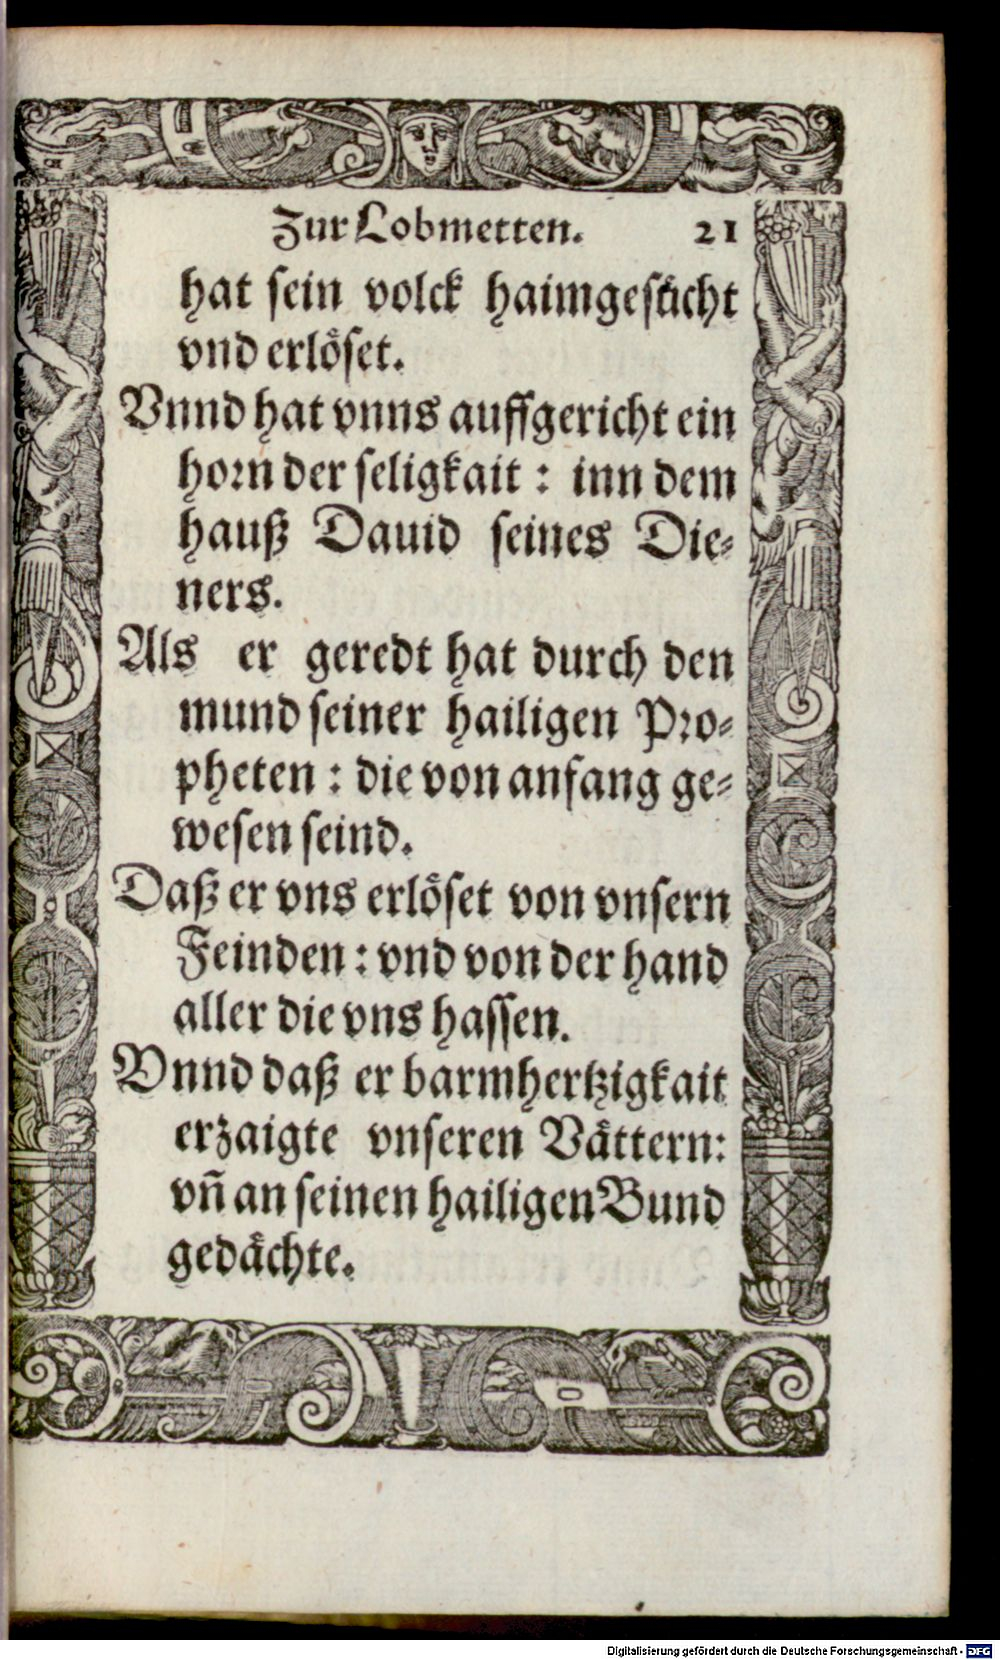 Zur Lobmetten. 21
hat sein volck haimgesůcht
vnd erlöset.
Vnnd hat vnns auffgericht ein
horn der seligkait : inn dem
hauß Dauid seines Die-
ners.
Als er geredt hat durch den
mund seiner hailigen Pro-
pheten : die von anfang ge-
wesen seind.
Daß er vns erlöset von vnsern
Feinden : vnd von der hand
aller die vns hassen.
Vnnd daß er barmhertzigkait
erzaigte vnseren Vättern:
vñ an seinen hailigen Bund
gedächte.
Digitalisierung gefördert durch die Deutsche Forschungsgemeinschaft - DFG